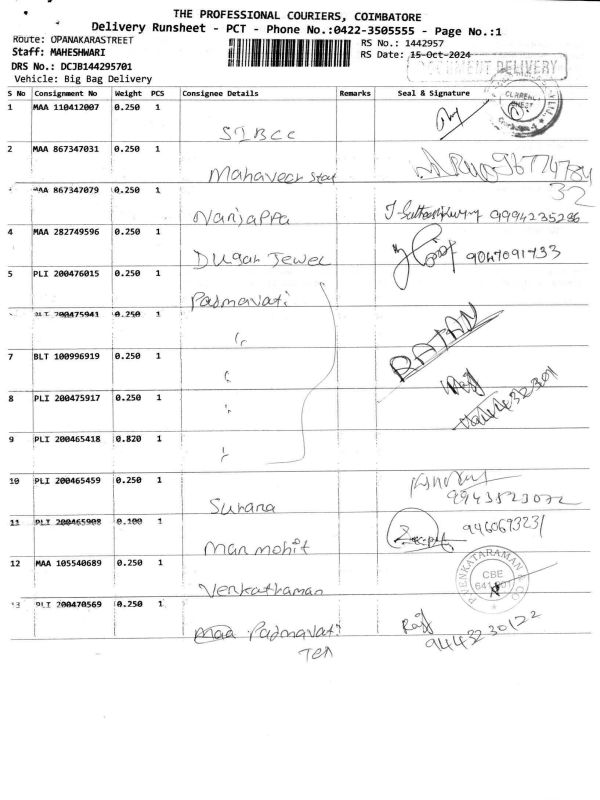 THE PROFESSIONAL COURIERS, COIMBATORE
Delivery Runsheet - PCT - Phone No.:0422-3505555 - Page No.:1
Route: OPANAKARASTREET
RS No.: 1442957
Staff: MAHESHWARI
RS Date: 15-Oct-2024
DRS No.: DCJB144295701
DELIVERY
Vehicle: Big Bag Delivery
S No Consignment No Weight PCS Consignee Details Remarks Seal & Signature
1 MAA 110412007 0.250 1
SIBCC
2 MAA 867347031 0.250 1
Mahaveer
MAA 867347079 0.250 1
Nanjappa 9994235296
4 MAA 282749596 0.250 1
Dugar Jewel 9047091733
5 PLI 200476015 0.250 1
Padmavati
200475941 0.250 1
RATAN
7 BLT 100996919 0.250 1
8 PLI 200475917 0.250 1
9 PLI 200465418 0.820 1
10 PLI 200465459 0.250 1
Surana
11 PLI 200465908 0.100 1
Manmohit
12 MAA 105540689 0.250 1
Venkathraman
VENKATARAMAN & CO
CBE
13 PLI 200470569 0.250 1
Maa Padmavati
Tex